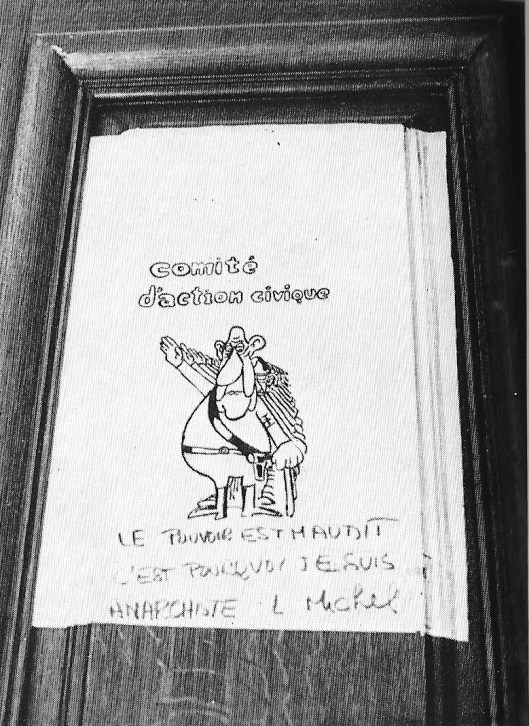 comité
d'action civique
LE POUVOIR EST MAUDIT
C'EST POURQUOI JE SUIS
ANARCHISTE L Michel